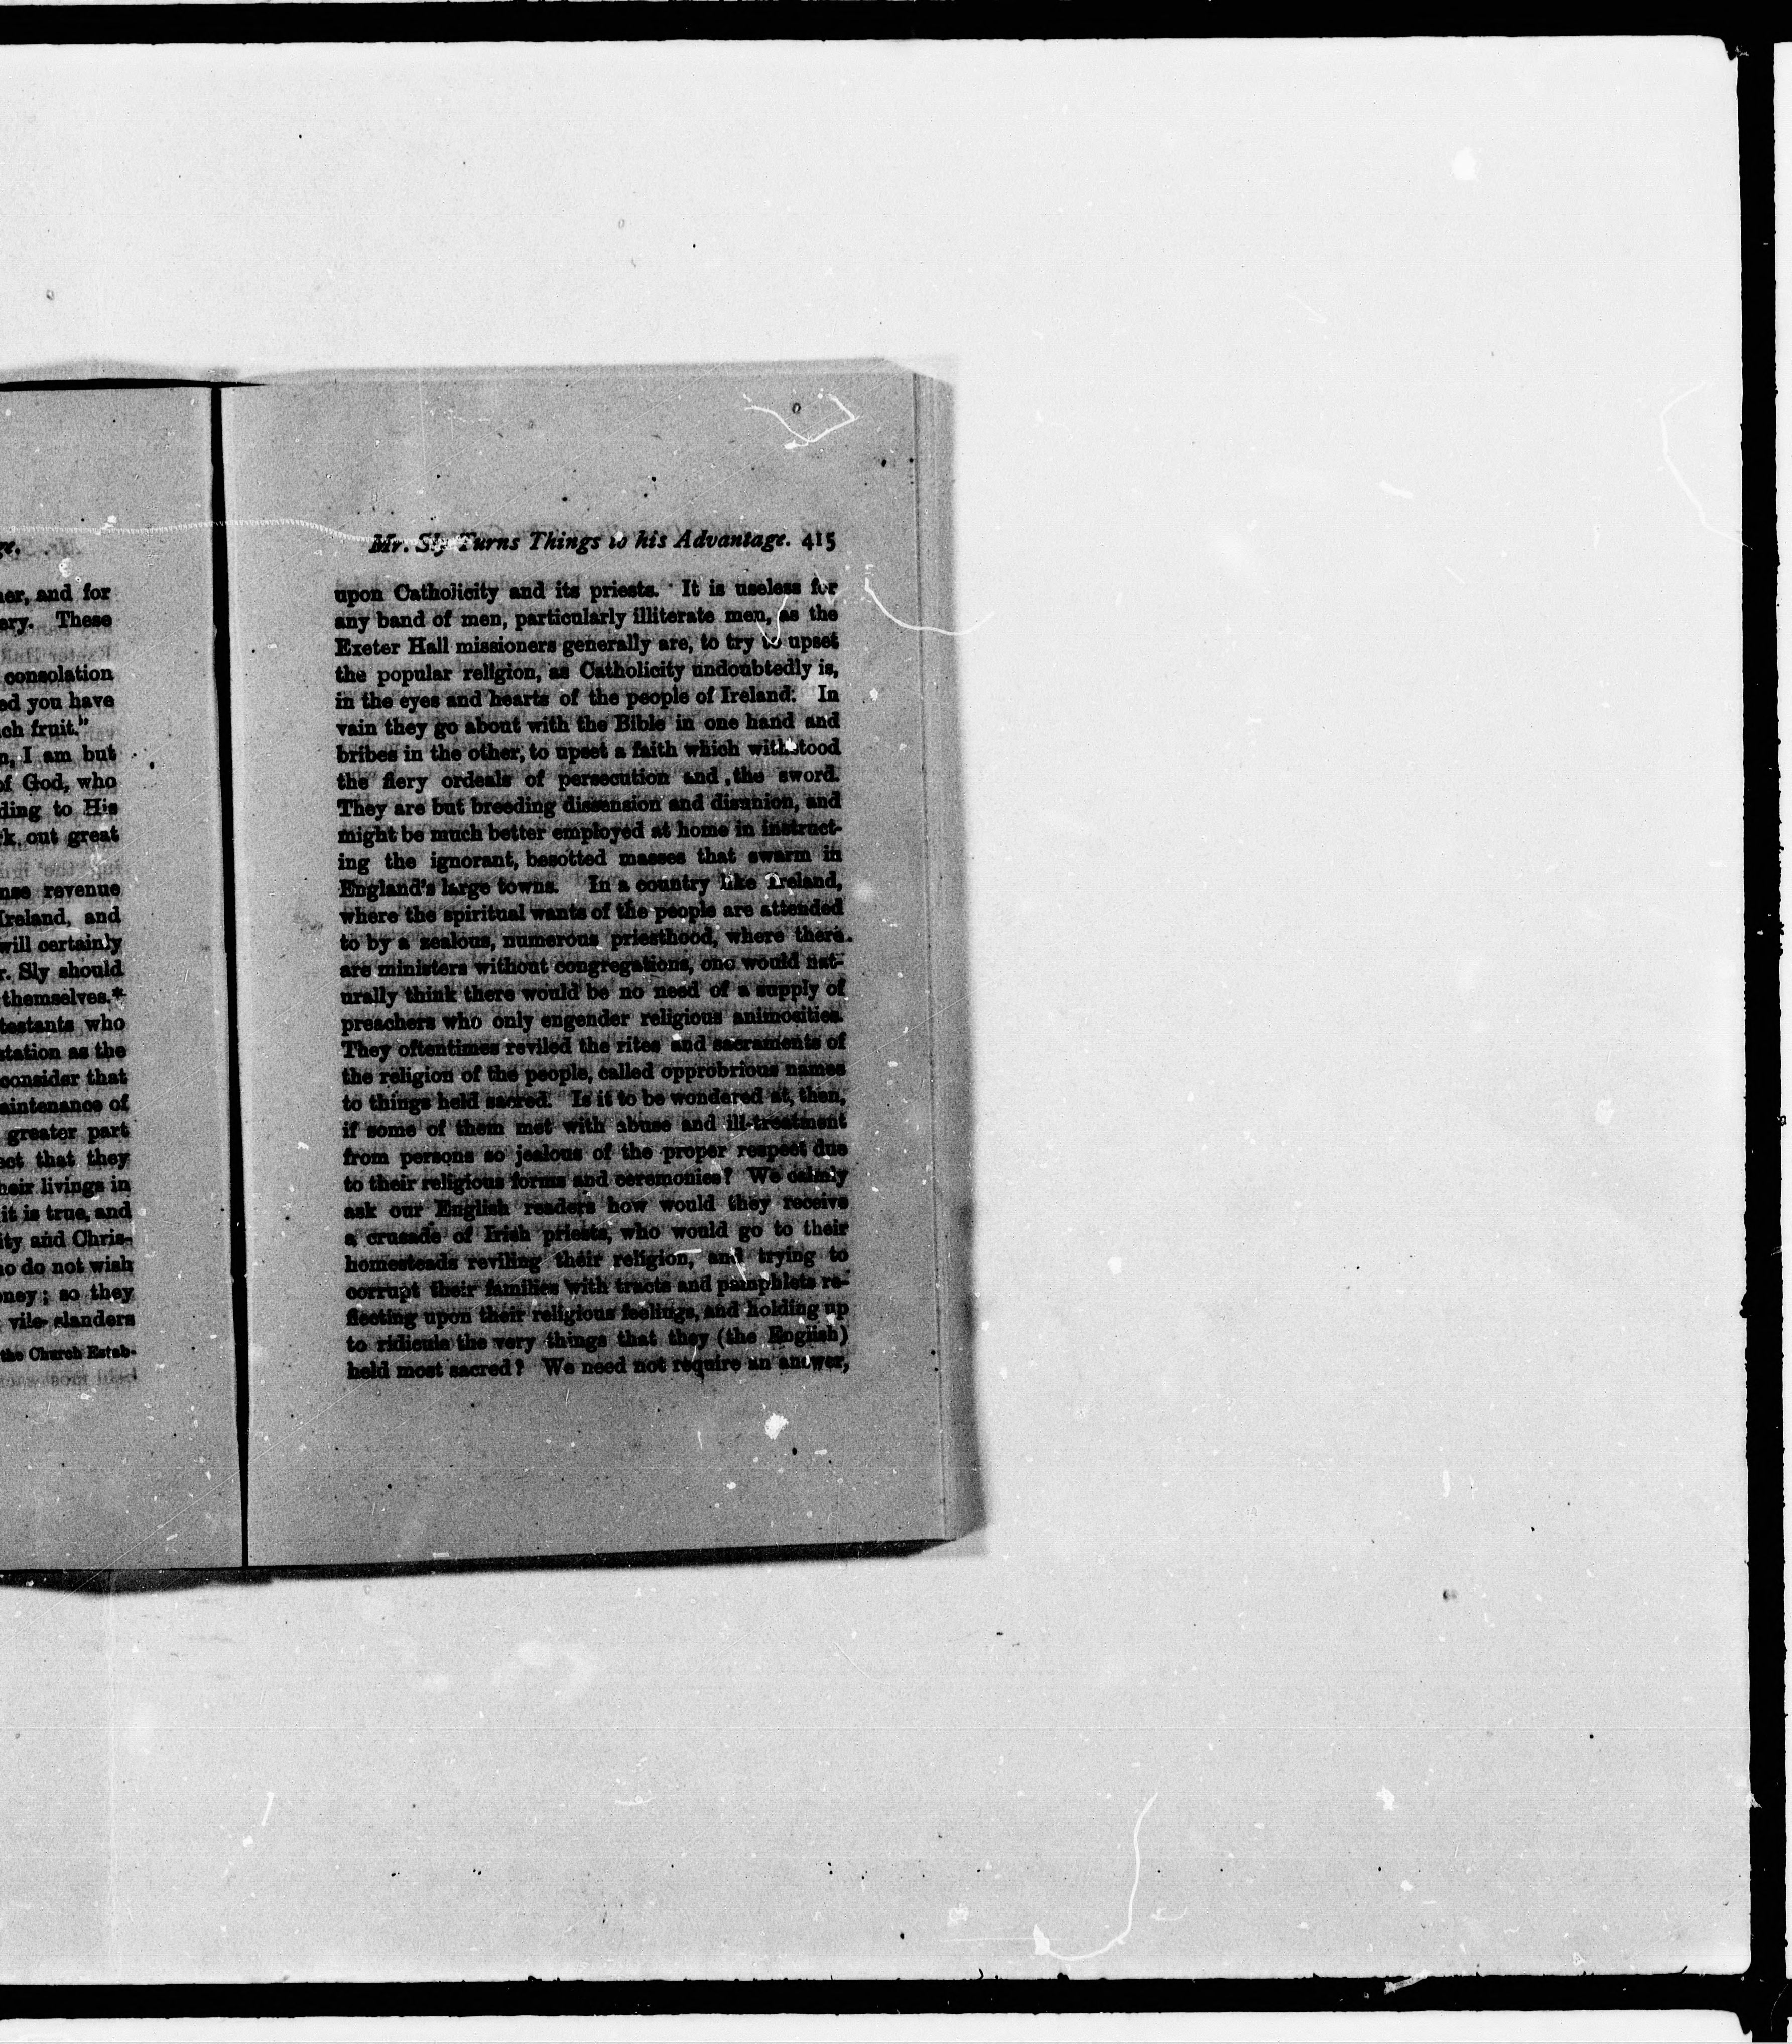 ge.
ner, and for
ery. These
consolation
ed you have
ch fruit."
n, I am but
of God, who
ding to His
rk out great
nse revenue
Ireland, and
will certainly
r. Sly should
themselves.*
testants who
station as the
consider that
aintenance of
greater part
ect that they
heir livings in
it is true, and
ity and Chris-
ho do not wish
oney; so they
vile slanders
the Church Estab-
Mr. Sly Turns Things to his Advantage. 415
upon Catholicity and its priests. It is useless for
any band of men, particularly illiterate men, as the
Exeter Hall missioners generally are, to try to upset
the popular religion, as Catholicity undoubtedly is,
in the eyes and hearts of the people of Ireland. In
vain they go about with the Bible in one hand and
bribes in the other, to upset a faith which withstood
the fiery ordeals of persecution and the sword.
They are but breeding dissension and disunion, and
might be much better employed at home in instruct-
ing the ignorant, besotted masses that swarm in
England's large towns. In a country like Ireland,
where the spiritual wants of the people are attended
to by a zealous, numerous priesthood, where there
are ministers without congregations, one would nat-
urally think there would be no need of a supply of
preachers who only engender religious animosities.
They oftentimes reviled the rites and sacraments of
the religion of the people, called opprobrious names
to things held sacred. Is it to be wondered at, then,
if some of them met with abuse and ill-treatment
from persons so jealous of the proper respect due
to their religious forms and ceremonies? We calmly
ask our English readers how would they receive
a crusade of Irish priests, who would go to their
homesteads reviling their religion, and trying to
corrupt their families with tracts and pamphlets re-
flecting upon their religious feelings, and holding up
to ridicule the very things that they (the English)
held most sacred? We need not require an answer,